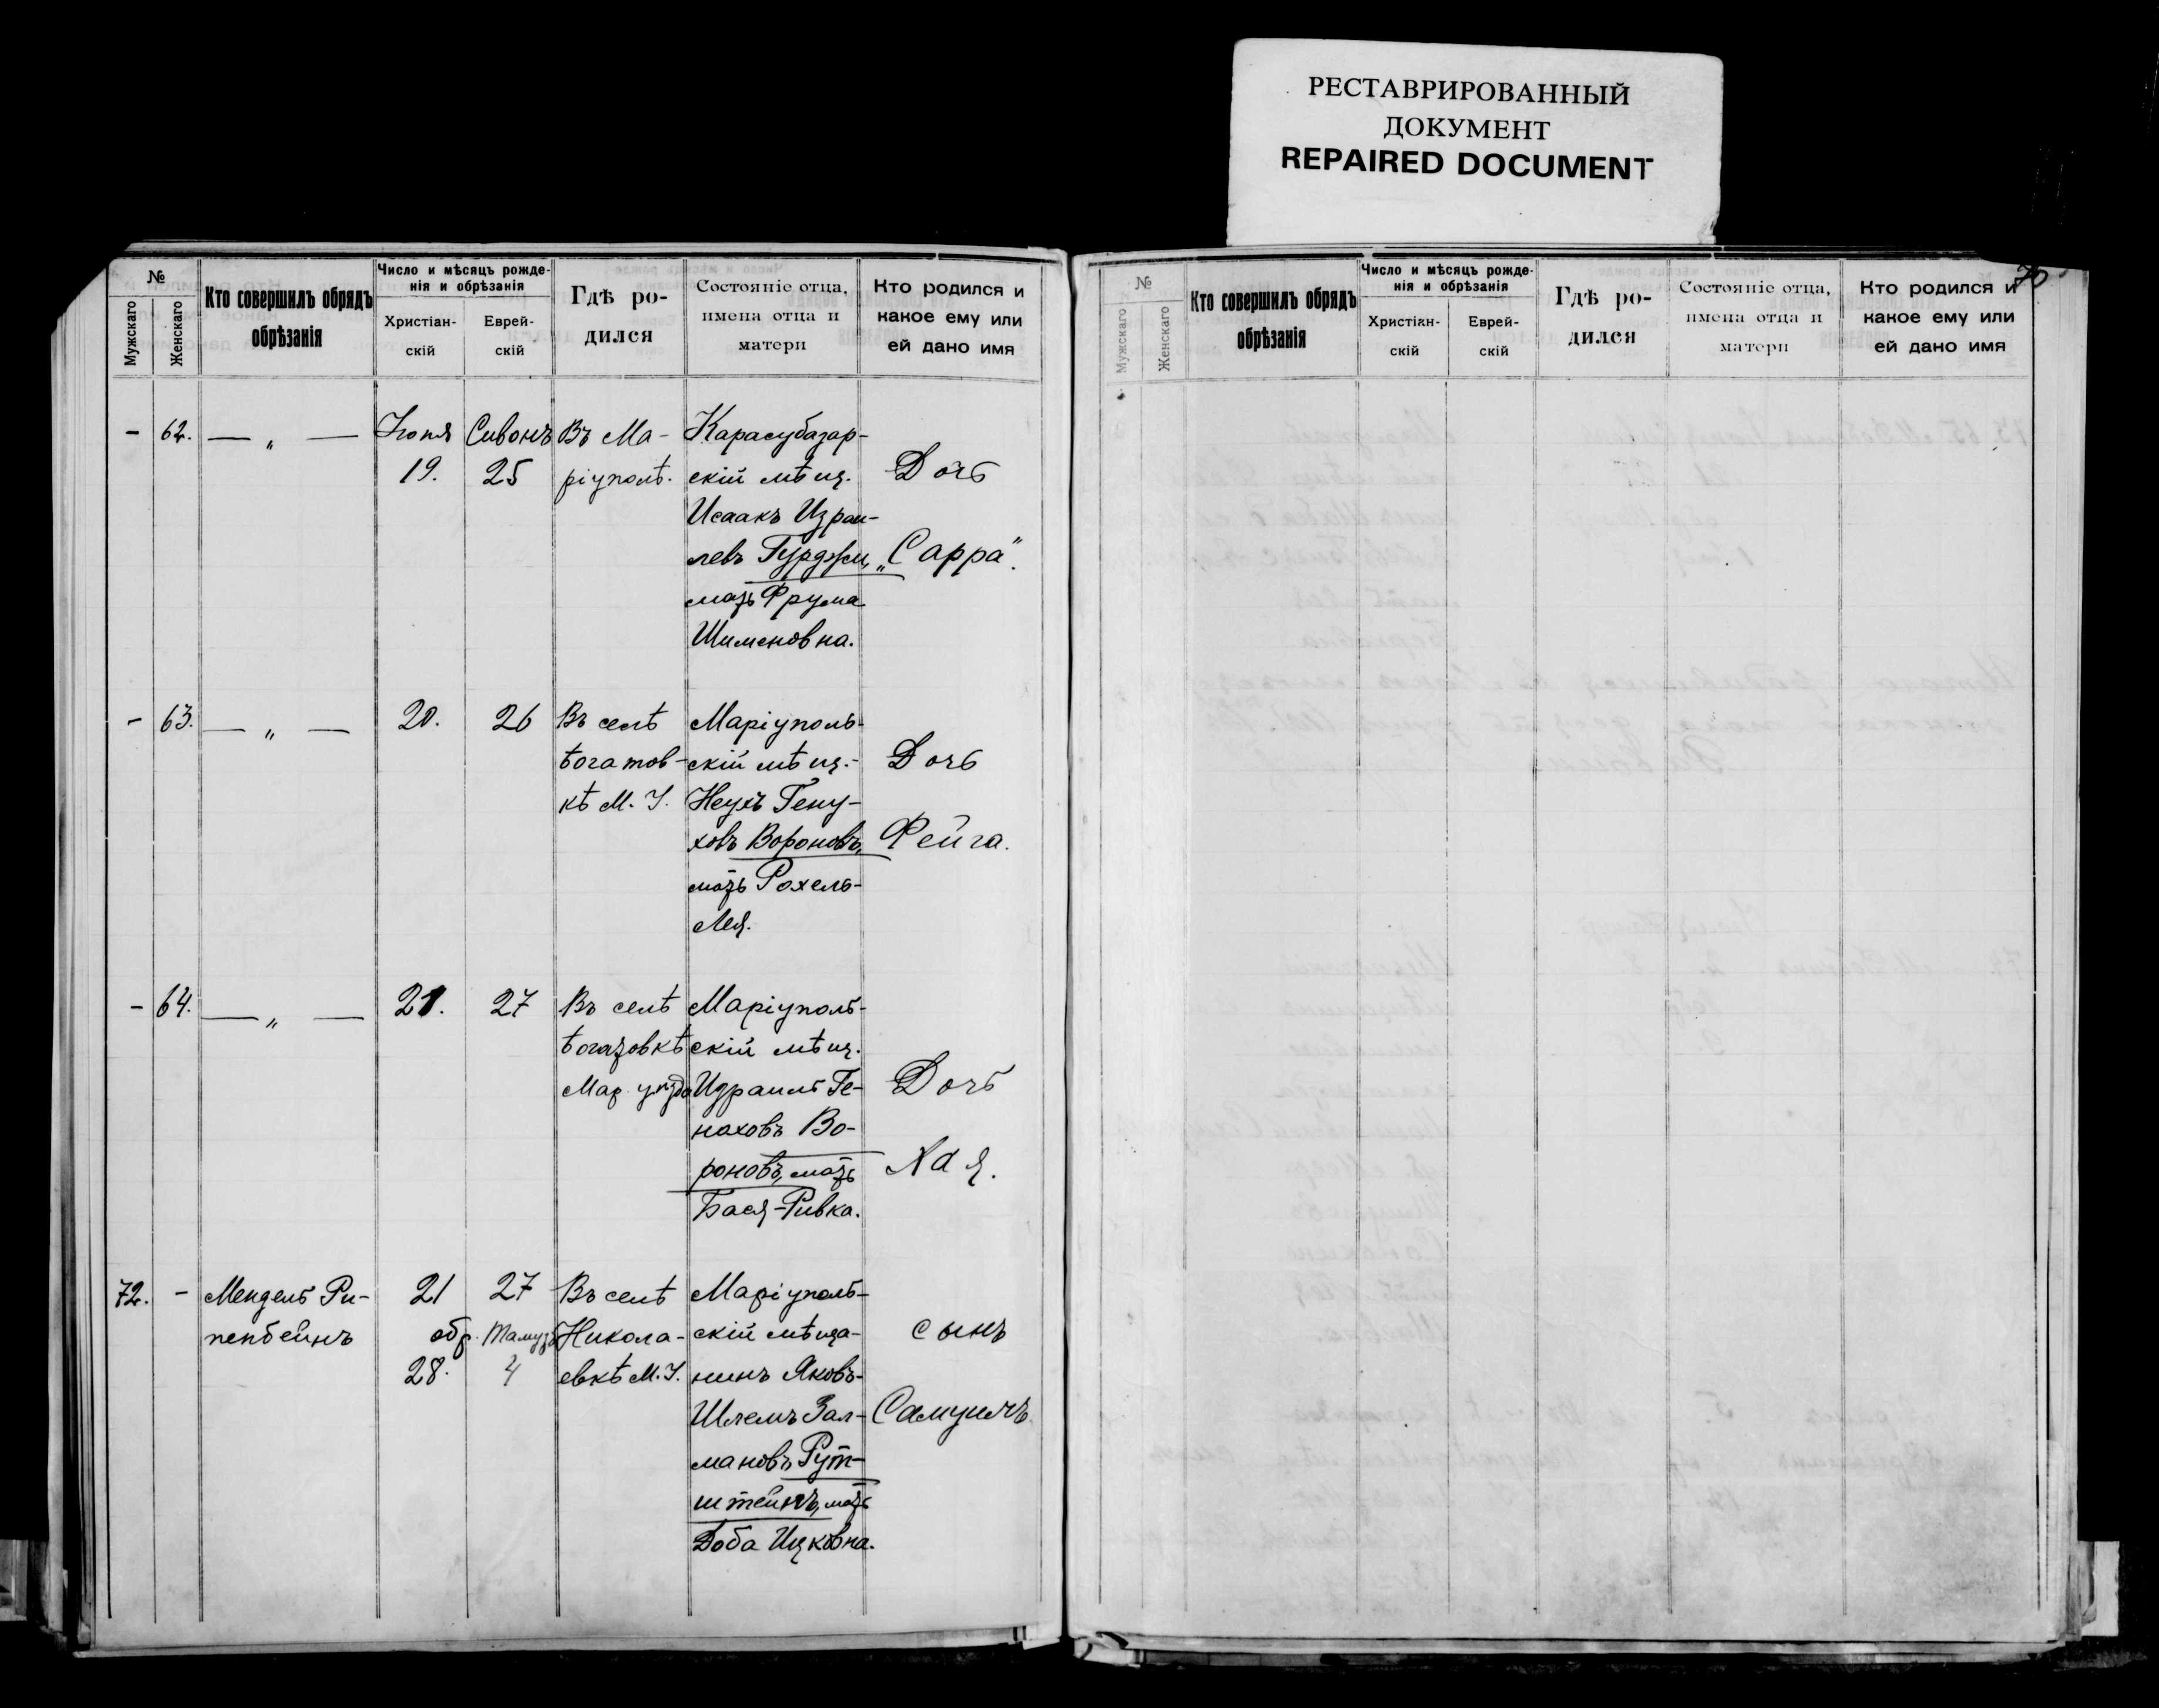 РЕСТАВРИРОВАННЫЙ
ДОКУМЕНТ
REPAIRED DOCUMENT
№
Мужскаго
Женскаго
Кто совершилъ обрядъ
обрѣзанія
Число и мѣсяцъ рожде-
нія и обрѣзанія
Христіан-
скій
Еврей-
скій
Гдѣ ро-
дился
Состояніе отца,
имена отца и
матери
Кто родился и
какое ему или
ей дано имя
- 62. — „ —
Іюня
19.
Сивонъ
25
Въ Ма-
ріуполѣ.
Карасубазар-
скій мѣщ.
Исаакъ Израи-
левъ Гурджи,
мать Фрума
Шименовна.
Дочь
„Сарра".
- 63. — „ —
20.
26
Въ селѣ
Богатов-
кѣ М. У.
Маріуполь-
скій мѣщ.-
Неухъ Гену-
ховъ Вороновъ,
мать Рохель-
Лея.
Дочь
Фейга.
- 64. — „ —
21.
27
Въ селѣ
Богатовкѣ
Мар. уѣзда
Маріуполь-
скій мѣщ.
Израиль Ге-
наховъ Во-
роновъ, мать
Бася-Ривка.
Дочь
Хая.
72. -
Мендель Ри-
пенбейнъ
21
обр.
28.
27
Тамузъ
4
Въ селѣ
Никола-
евкѣ М. У.
Маріуполь-
скій мѣща-
нинъ Яковъ-
Шлемъ Зал-
мановъ Рут-
штейнъ, мать
Доба Ицковна.
сынъ
Самуилъ
№
Мужскаго
Женскаго
Кто совершилъ обрядъ
обрѣзанія
Число и мѣсяцъ рожде-
нія и обрѣзанія
Христіан-
скій
Еврей-
скій
Гдѣ ро-
дился
Состояніе отца,
имена отца и
матери
Кто родился и
какое ему или
ей дано имя
70